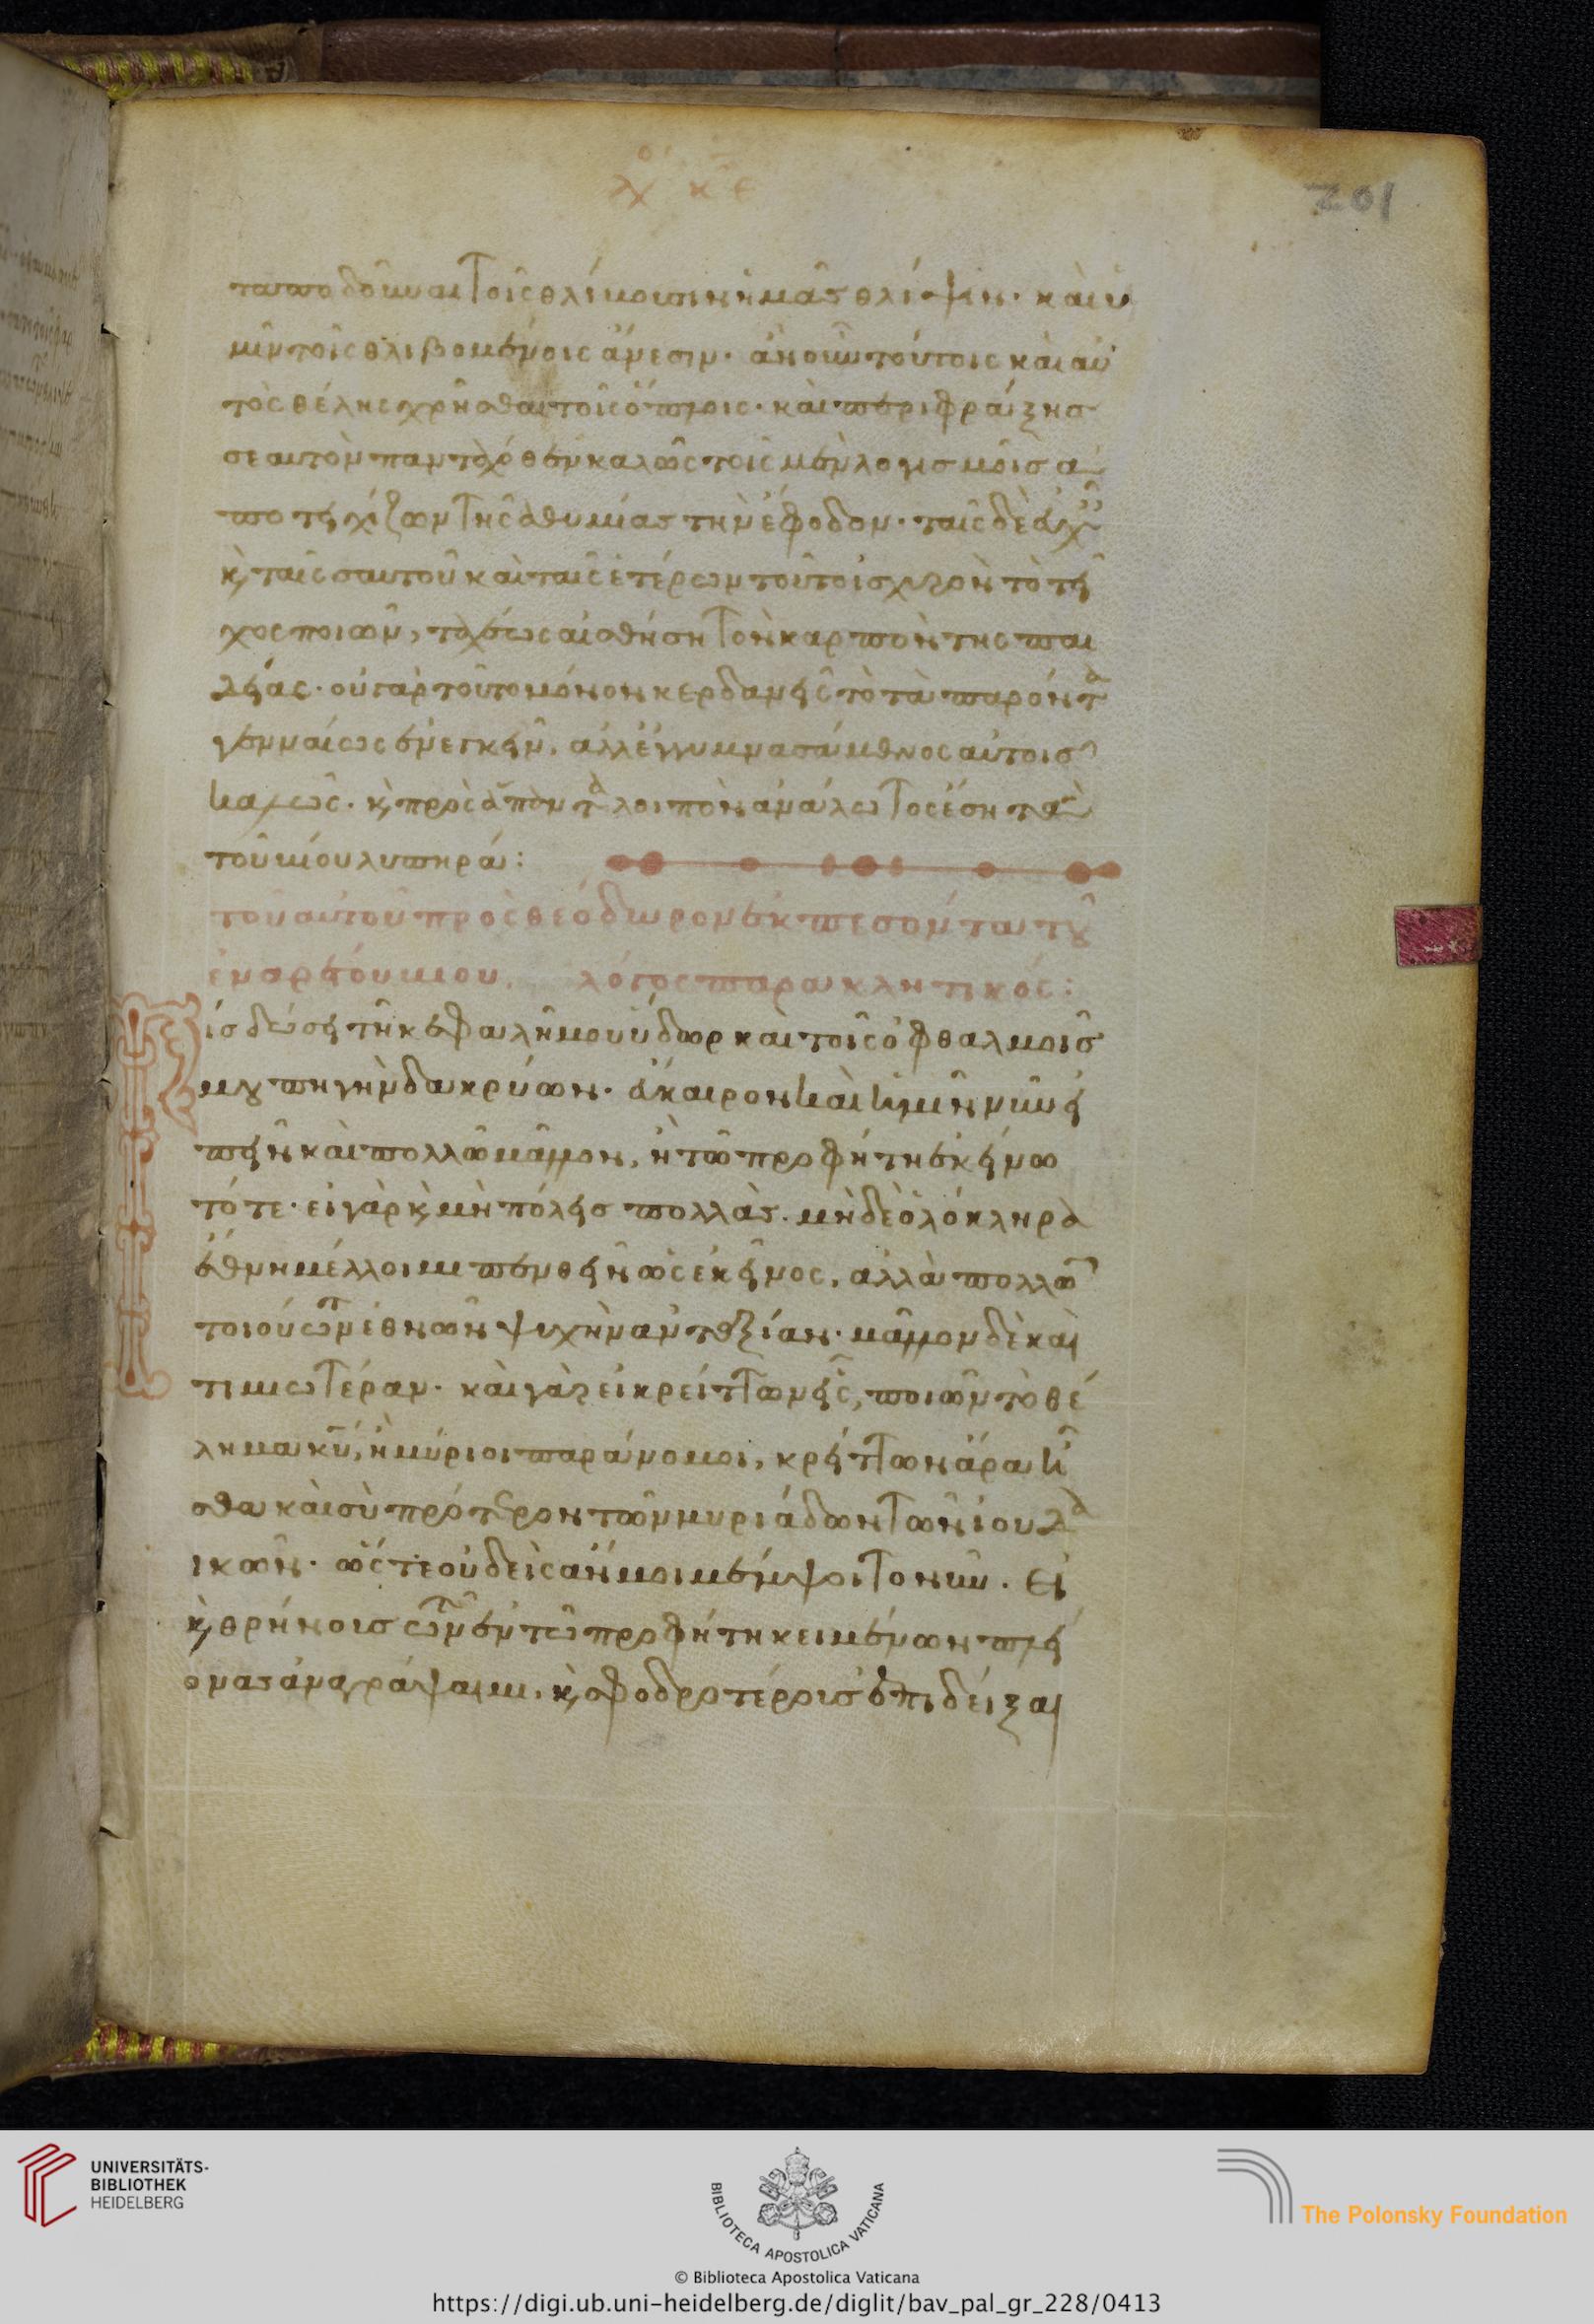 λο κε
201
ταποδοῦναι τοῖς θλίβουσιν ἡμᾶς θλίψιν· καὶ ὑ
μῖν τοῖς θλιβομένοις ἄνεσιν· ἂν οὖν τούτοις καὶ αὐ
τὸς θέλης χρῆσθαι τοῖς ὅπλοις· καὶ περιφράξης
σεαυτὸν πανταχόθεν καλῶς τοῖς μὲν λογισμοῖς ἀ
ποτειχίζων τῆς ἀθυμίας τὴν ἔφοδον· ταῖς δὲ εὐχαῖς
κ ταῖς σαυτοῦ καὶ ταῖς ἑτέρων τοῦτο ἰσχυρὸν τὸ τεῖ
χος ποιῶν, ταχέως αἰσθήση τὸν καρπὸν τῆς παι
δείας· οὐ γὰρ τοῦτο μόνον κερδανεῖς τὸ τὰ παρόντα
γενναίως ἐνεγκεῖν, ἀλλ' ἐγγυμνασάμενος αὐτοῖς
καλῶς· κ πρὸς ἅπαντα λοιπὸν ἀνάλωτος ἔση τὰ
τοῦ βίου λυπηρά:
τοῦ αὐτοῦ πρὸς θεόδωρον ἐκπεσόντα τοῦ
ἐναρέτου βίου. λόγος παρακλητικός:
Τίς δώσει τῆ κεφαλῆ μου ὕδωρ καὶ τοῖς ὀφθαλμοῖς
μου πηγὴν δακρύων· εὔκαιρον καὶ ἡμῖν νῦν εἰ
πεῖν καὶ πολλῶ μᾶλλον, ἢ τῶ προφήτη ἐκείνω
τότε· εἰ γὰρ κ μὴ πόλεις πολλὰς· μηδὲ ὁλόκληρα
ἔθνη μέλλοιμι πενθεῖν ὡς ἐκεῖνος, ἀλλὰ πολλῶν
τοιούτων ἐθνῶν ψυχὴν ἀνταξίαν· μᾶλλον δὲ καὶ
τιμιωτέραν· καὶ γὰρ εἰ κρείττων εἷς, ποιῶν τὸ θέ
λημα κυ, ἢ μύριοι παράνομοι, κρείττων ἄρα ἦ
σθα καὶ σὺ πρότερον τῶν μυριάδων τῶν ἰουδα
ικῶν· ὥστε οὐδεὶς ἄν μοι μέμψοιτο νῦν· εἰ
κ θρήνοις τῶν ἐν τῶ προφήτη κειμένων πλεί
ονας ἀναγράψαιμι· κ σφοδροτέροις ἐπιδείξαι
UNIVERSITÄTS-
BIBLIOTHEK
HEIDELBERG
BIBLIOTECA APOSTOLICA VATICANA
The Polonsky Foundation
© Biblioteca Apostolica Vaticana
https://digi.ub.uni-heidelberg.de/diglit/bav_pal_gr_228/0413